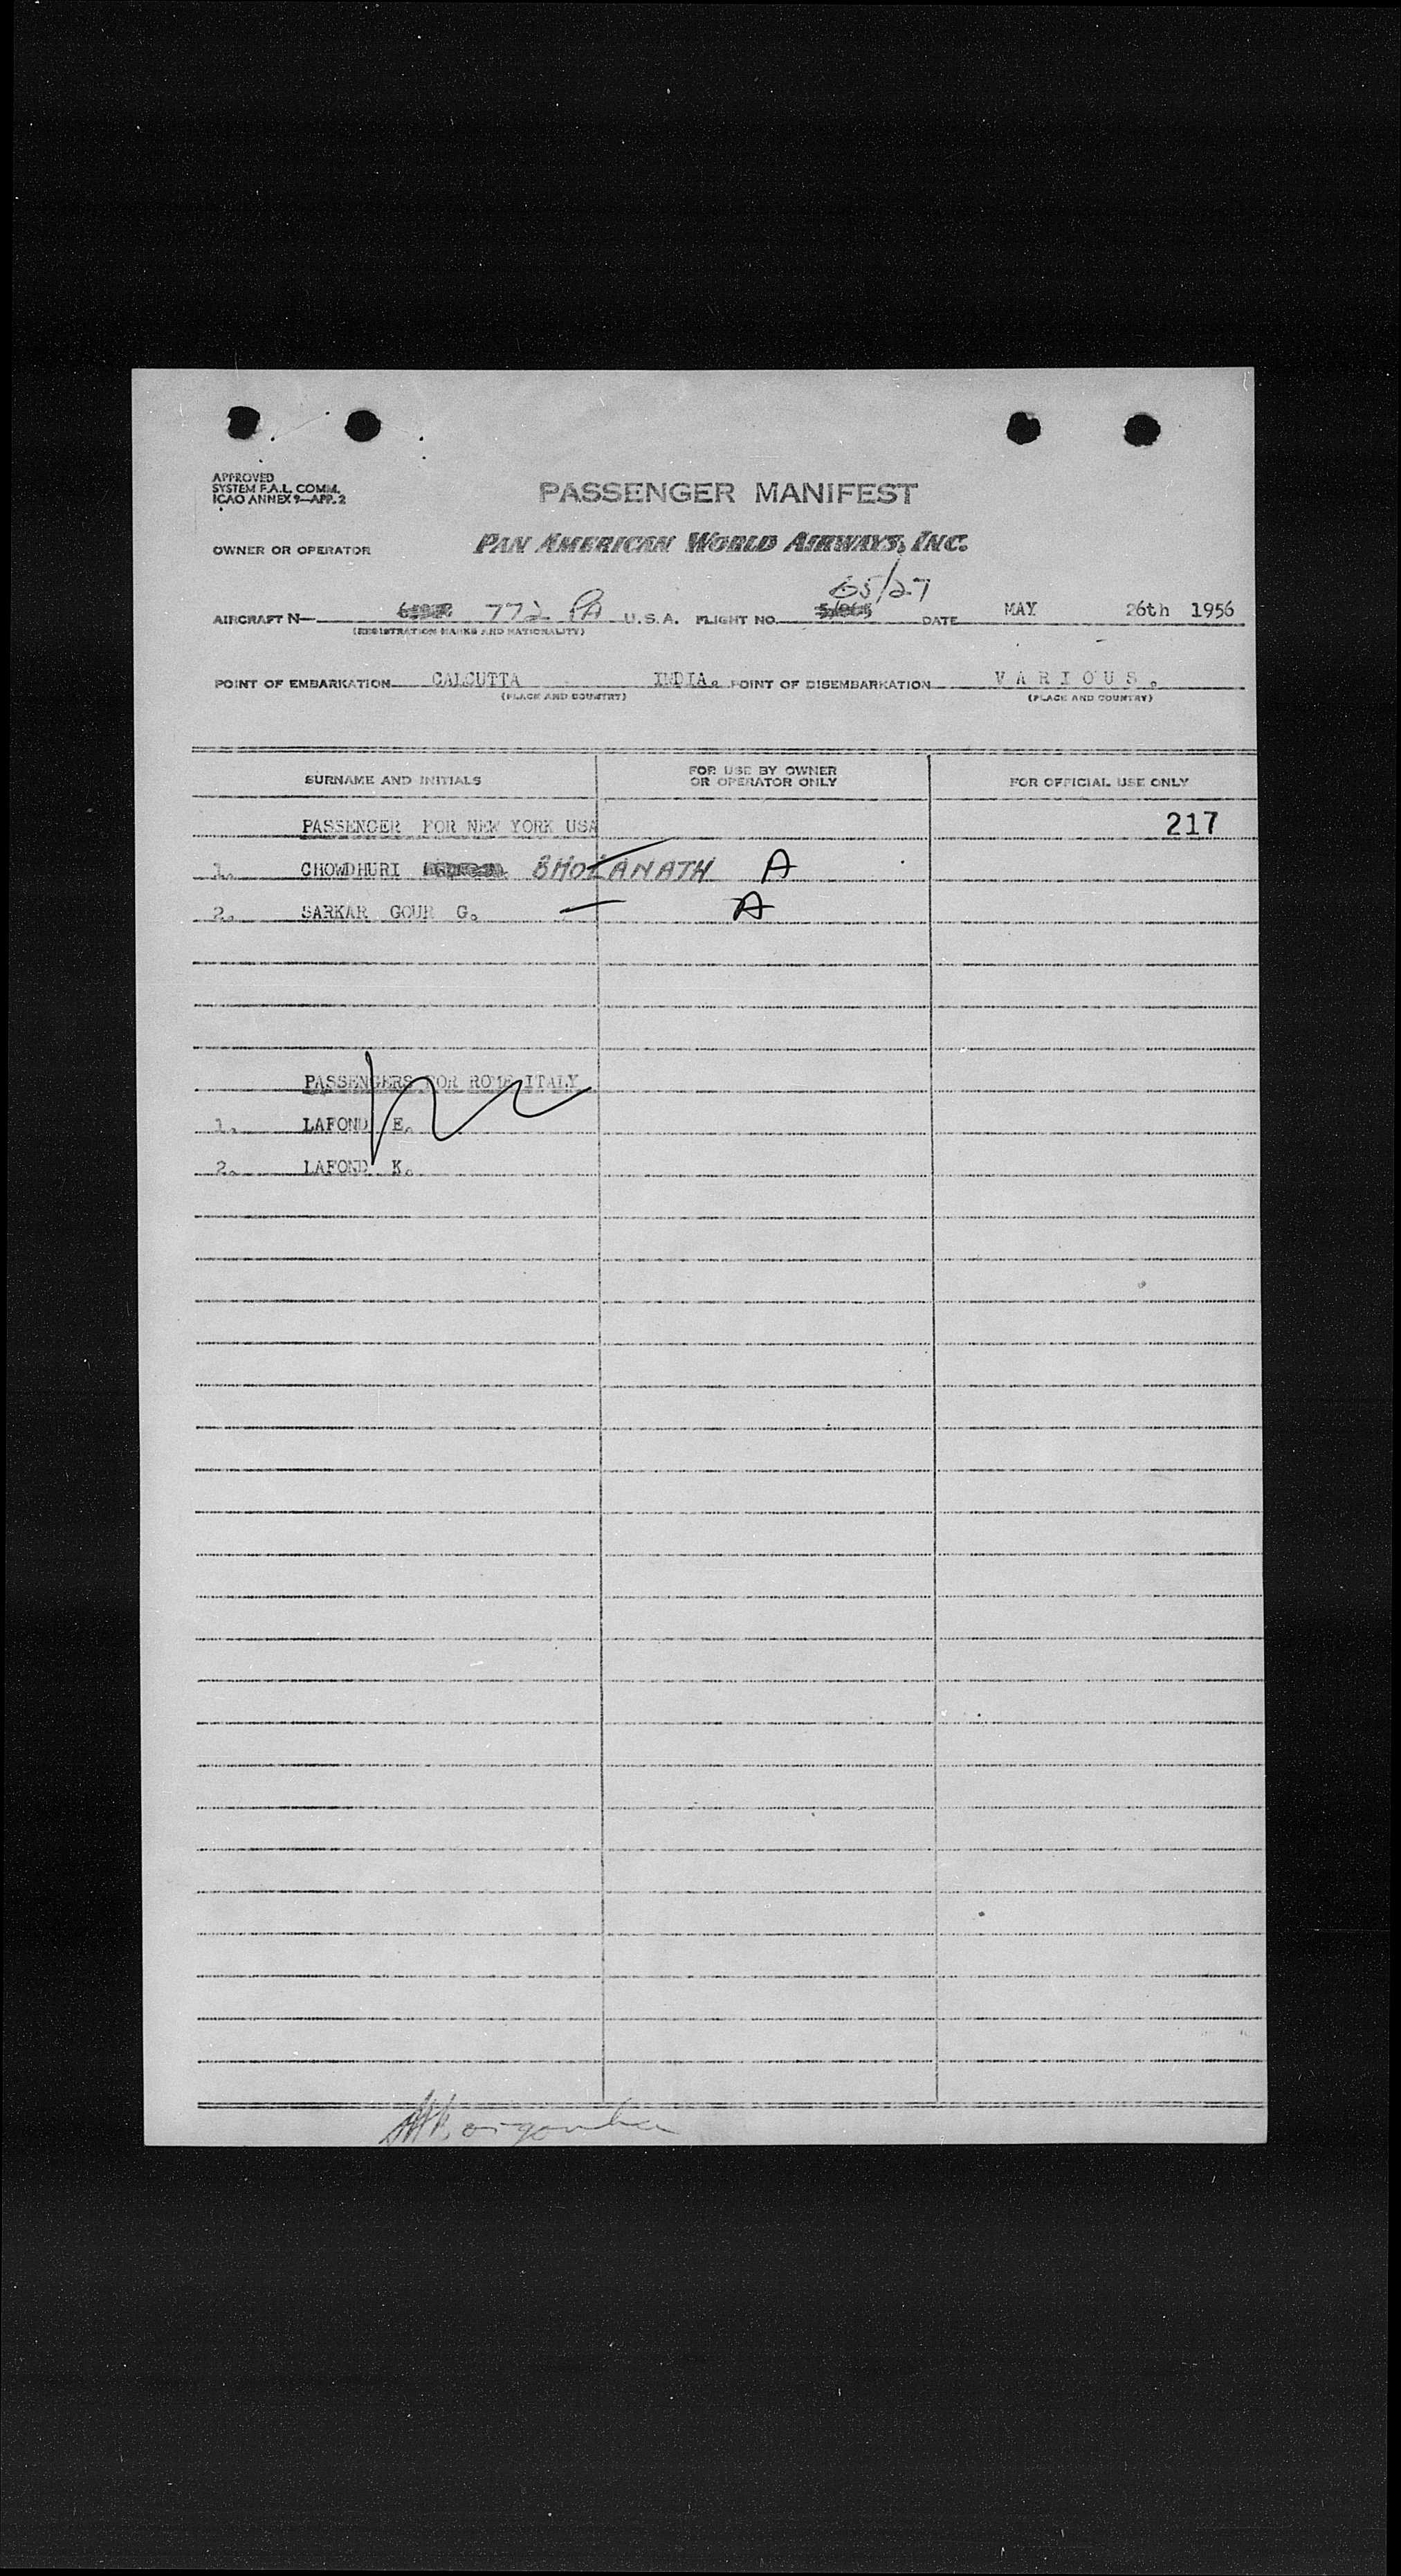 APPROVED
SYSTEM F.A.L. COMM.
ICAO ANNEX 9—APP. 2
PASSENGER MANIFEST
OWNER OR OPERATOR PAN AMERICAN WORLD AIRWAYS, INC.
65/27
AIRCRAFT N— 772 PA U.S.A. FLIGHT NO. DATE MAY 26th 1956
(REGISTRATION MARKS AND NATIONALITY)
POINT OF EMBARKATION CALCUTTA INDIA. POINT OF DISEMBARKATION V A R I O U S .
(PLACE AND COUNTRY) (PLACE AND COUNTRY)
SURNAME AND INITIALS FOR USE BY OWNER OR OPERATOR ONLY FOR OFFICIAL USE ONLY
PASSENGER FOR NEW YORK USA 217
1. CHOWDHURI BHOLANATH A
2. SARKAR GOUR G. A
PASSENGERS FOR ROME ITALY
1. LAFOND E.
2. LAFOND K.